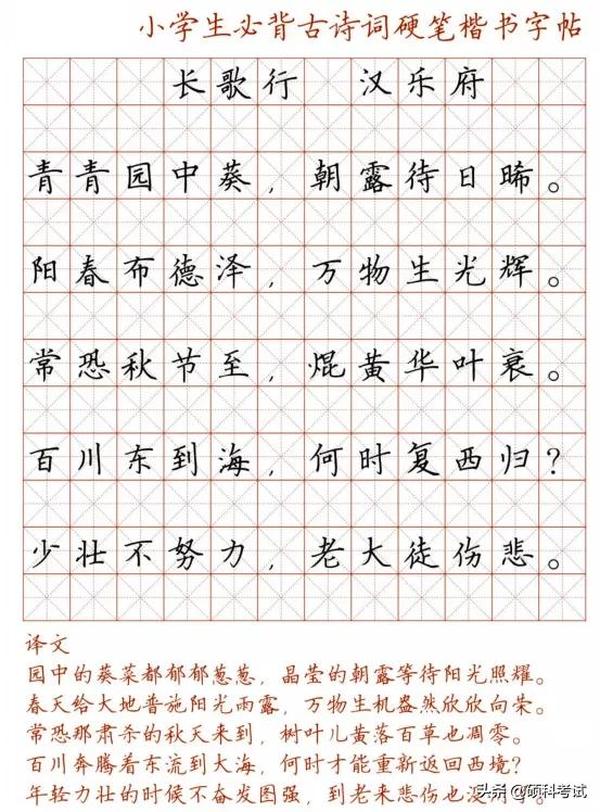 小学生必背古诗词硬笔楷书字帖
长歌行 汉乐府
青青园中葵，朝露待日晞。
阳春布德泽，万物生光辉。
常恐秋节至，焜黄华叶衰。
百川东到海，何时复西归？
少壮不努力，老大徒伤悲。
译文
园中的葵菜都郁郁葱葱，晶莹的朝露等待阳光照耀。
春天给大地普施阳光雨露，万物生机盎然欣欣向荣。
常恐那肃杀的秋天来到，树叶儿黄落百草也凋零。
百川奔腾着东流到大海，何时才能重新返回西境？
年轻力壮的时候不奋发图强，到老来悲伤也没
头条@硕科考试